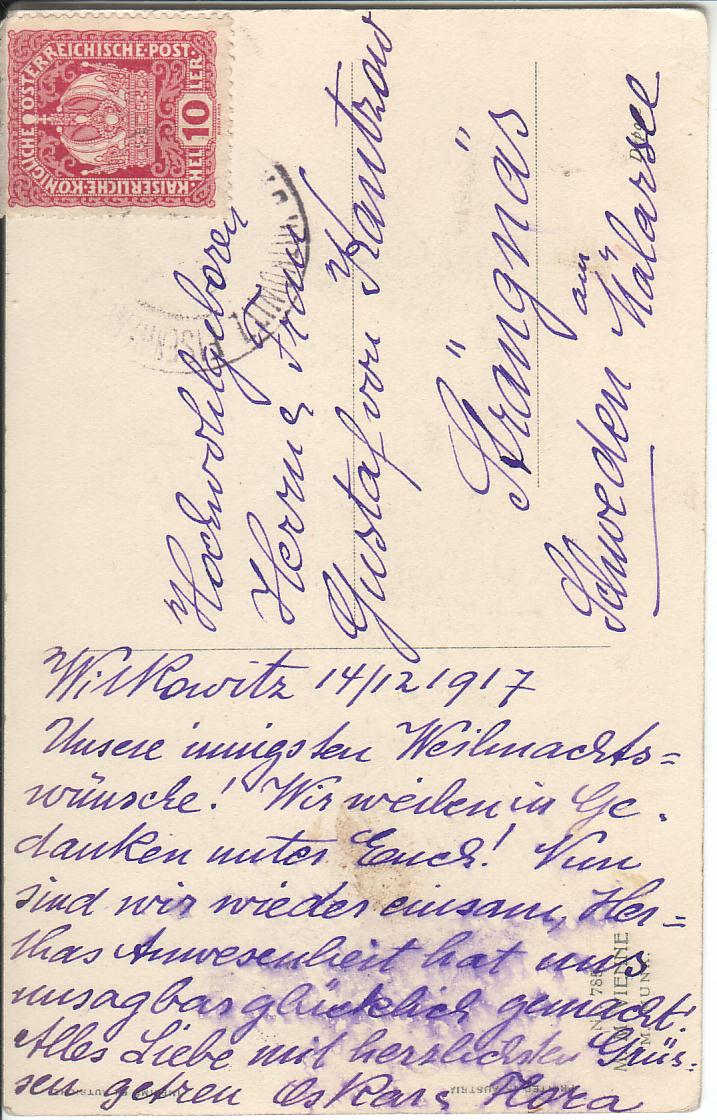 KAISERLICHE·KÖNIGLICHE ÖSTERREICHISCHE·POST·
HELLER
10
Hochwohlgeboren
Herrn & Frau
Gustaf von Kantzow
Strängnäs
am
Schweden Mälarsee
Witkowitz 14/12 1917
Unsere innigsten Weihnachts=
wünsche! Wir weilen in Ge-
danken unter Euch! Nun
sind wir wieder einsam, Her=
thas Anwesenheit hat uns
unsagbar glücklich gemacht!
Alles Liebe mit herzlichsten Grüs-
sen getreu Oskar &
M. M. VIENNE
M. MUNK